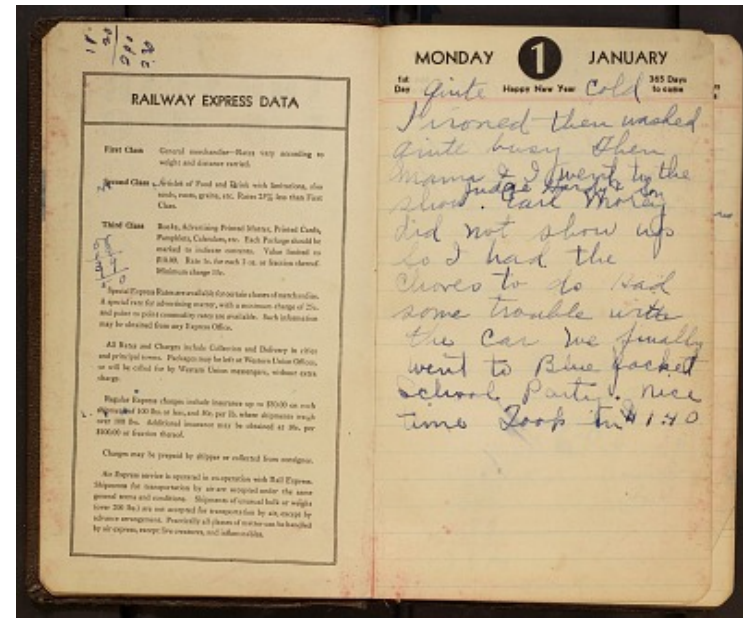 RAILWAY EXPRESS DATA
First Class General merchandise—Rates vary according to
weight and distance carried.
Second Class Articles of Food and Drink with limitations, also
seeds, roots, grains, etc. Rates 25% less than First
Class.
Third Class Books, Advertising Printed Matter, Printed Cards,
Pamphlets, Calendars, etc. Each Package should be
marked to indicate contents. Value limited to
$10.00. Rate 1c. for each 2 oz. or fraction thereof.
Minimum charge 15c.
Special Express Rates are available for certain classes of merchandise.
A special rate for advertising matter, with a minimum charge of 25c.
and point to point commodity rates are available. Such information
may be obtained from any Express Office.
All Rates and Charges include Collection and Delivery in cities
and principal towns. Packages may be left at Western Union Offices,
or will be called for by Western Union messengers, without extra
charge.
Regular Express charges include insurance up to $50.00 on each
shipment of 100 lbs. or less, and 50c. per lb. where shipments weigh
over 100 lbs. Additional insurance may be obtained at 10c. per
$100.00 or fraction thereof.
Charges may be prepaid by shipper or collected from consignee.
Air Express service is operated in co-operation with Rail Express.
Shipments for transportation by air are accepted under the same
general terms and conditions. Shipments of unusual bulk or weight
(over 200 lbs.) are not accepted for transportation by air, except by
advance arrangement. Practically all classes of matter can be handled
by air express, except live creatures, and inflammables.
MONDAY 1 JANUARY
1st Day Happy New Year 365 Days to come
Quite Cold
I ironed then washed
Quite busy Then
Mama & I went to the
Judge Hardy & Son
show. Earl Morey
did not show up
so I had the
Chores to do Had
some trouble with
the Car We finally
went to Blue Jacket
School Party. Nice
time $1.40